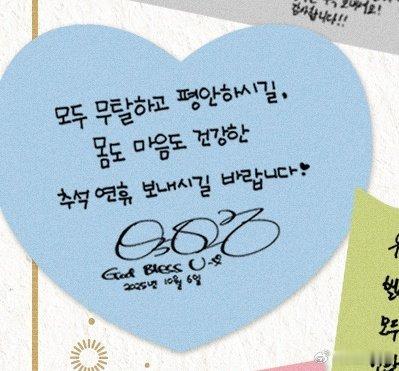 감사합니다!!
모두 무탈하고 평안하시길,
몸도 마음도 건강한
추석 연휴 보내시길 바랍니다♥
God Bless U
2025년 10월 6일
모두